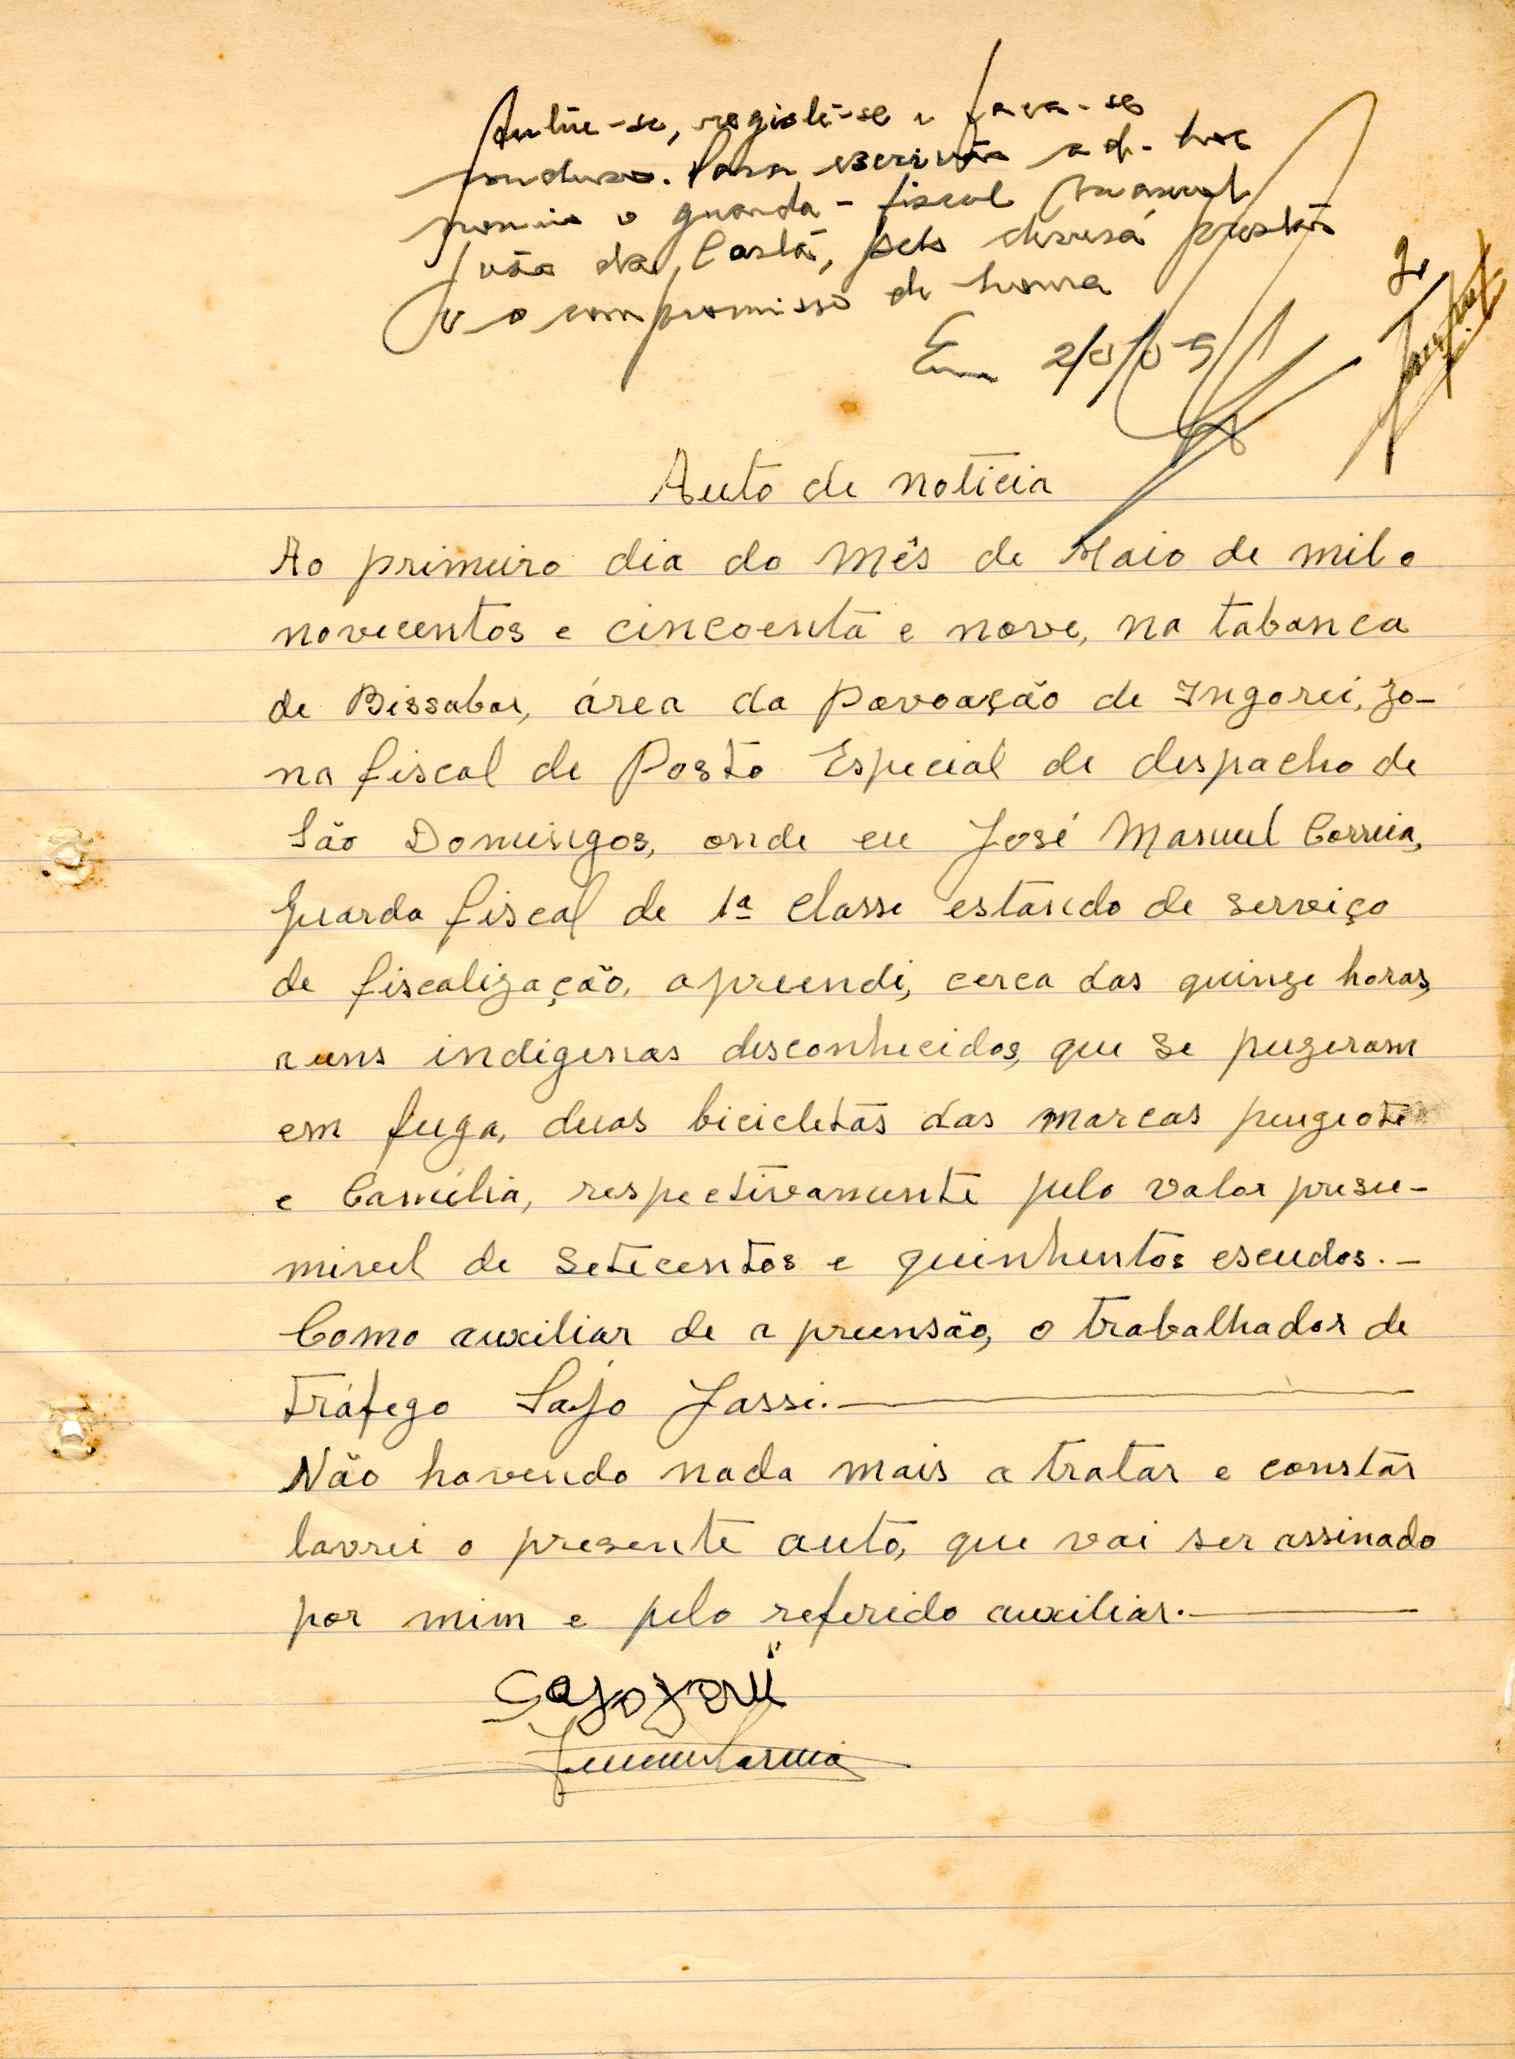 Autue-se, registe-se e faça-se
concluso. Para escrivão ad-hoc
nomeio o guarda-fiscal Manuel
João da Costa, pelo deverá prestar
o compromisso de honra
Em 2/5/59
Auto de noticia
Ao primeiro dia do Mês de Maio de mil e
novecentos e cincoenta e nove, na tabanca
de Bissabor, área da Povoação de Ingorei, zo-
na fiscal de Posto Especial de despacho de
São Domingos, onde eu José Manuel Correia,
Guarda fiscal de 1ª classe estando de serviço
de fiscalização, apreendi, cerca das quinze horas,
a uns indigenas desconhecidos, que se puzeram
em fuga, duas bicicletas das marcas peugeote
e Camélia, respectivamente pelo valor presu-
mivel de setecentos e quinhentos escudos.-
Como auxiliar de apreensão, o trabalhador de
tráfego Sajo Jassi.
Não havendo nada mais a tratar e constar
lavrei o presente auto, que vai ser assinado
por mim e pelo referido auxiliar.
Sajo Jassi